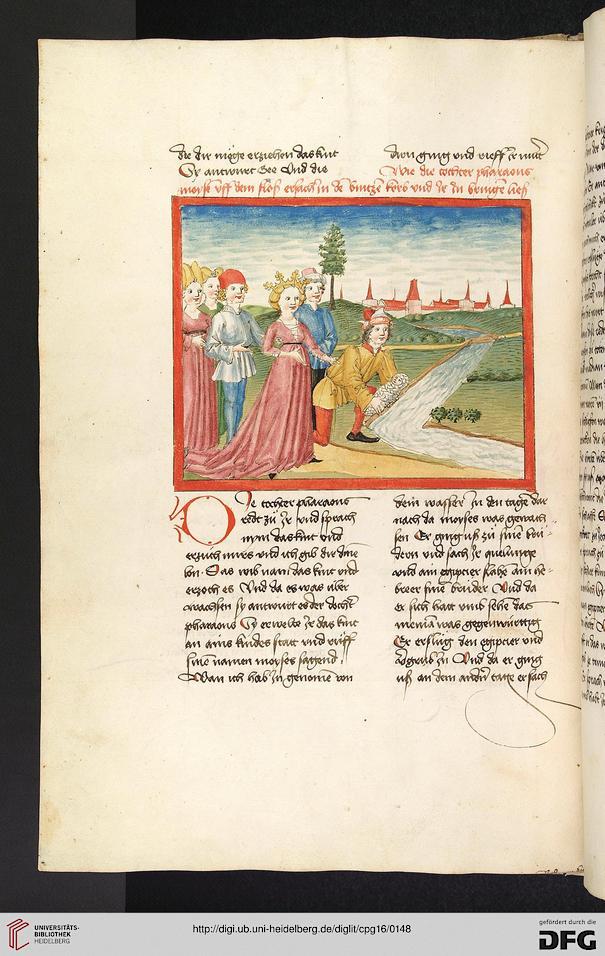 die dir möge erziehen das kint
Sy antwurt Gee Und die
dirn ging und rieff ir mutt
Wie die tochter pharaons
moyse uff dem fließ ersach in de bintzen korb und de zu bringen ließ
Die tochter pharaons
redt zu Ir und sprach
nym das kint und
erzuch mirs und ich gib dir dine
lon Das wib nam das kint und
erzoch es Und da es was uber
wachsen sy antwurt es der dochter
pharaons Sy erwelte Ir das kint
an ains kindes statt und rieff
sine namen moyses sagend
Wan ich hab In genomē von
dem wasser In den tagē dar
nach da moyses was gewach
sen Er ging uß zu sine bru
dern und sach Ir
und ain egiptier slahē ain he
breer sine bruder Und da
er sich hatt umb sehe das
nieman was gegenwirttig
Er erslug den egiptier und
zu Und da er ging
uß an dem andn tage ersach
UNIVERSITÄTS-
BIBLIOTHEK
HEIDELBERG
http://digi.ub.uni-heidelberg.de/diglit/cpg16/0148
gefördert durch die
DFG